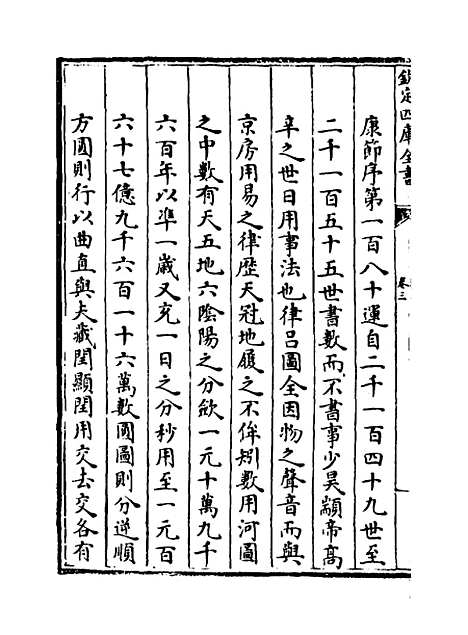 欽定四庫全書
卷三
康節序第一百八十運自二千一百四十九世至
二千一百五十五世書數而不書事少昊顓帝高
辛之世日用事法也律呂圖全因物之聲音而與
京房用易之律歴天冠地履之不侔矧數用河圖
之中數有天五地六陰陽之分欤一元十萬九千
六百年以凖一歳又充一日之分秒用至一元百
六十七億九千六百一十六萬數圓圖則分逆順
方圖則行以曲直與夫藏閏顯閏用交去交各有